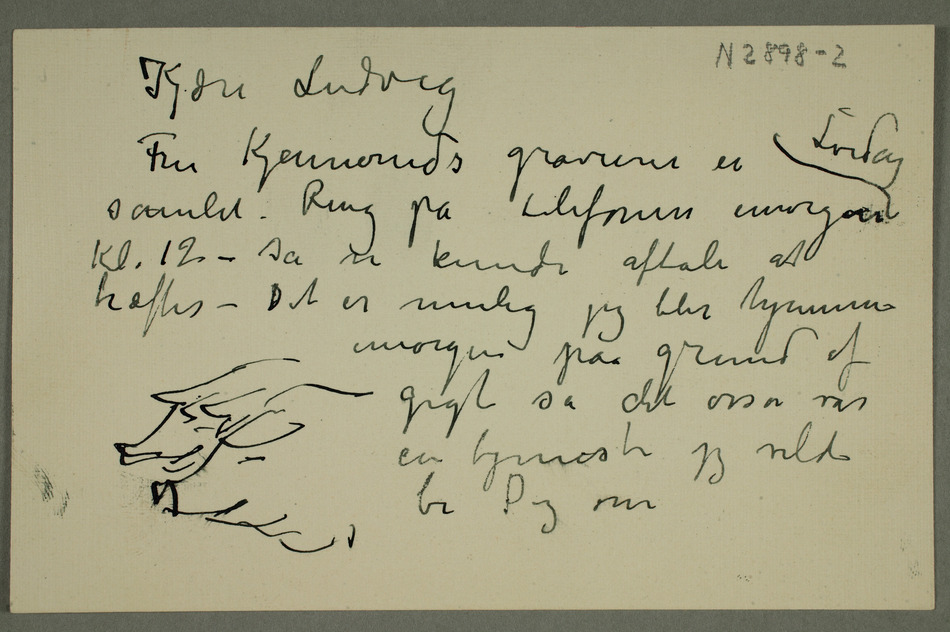 N 2898-2
Kjære Ludvig
Fru Kjenneruds gravurer er Lördag
samlet. Ring på telefonen imorgen
Kl. 12 – Så vi kunde aftale at
træffes – Det er mulig jeg blir hjemme
imorgen paa grund af
gigt så det osså var
en tjeneste jeg vilde
be Dig om